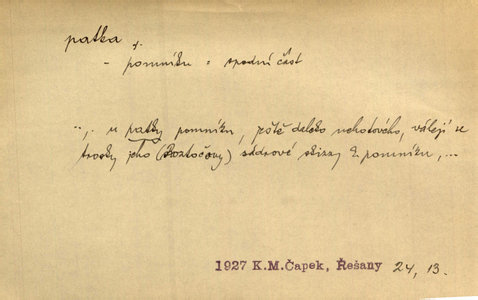 patka f.
- pomníku = spodní část
"... u patky pomníku, ještě daleko nehotového, válejí se
trosky jeho (Roztočovy) sádrové skizzy k pomníku, ...
1927 K.M.Čapek, Řešany 24, 13.